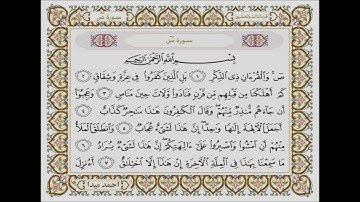 سورة ص
الجزء الثالث والعشرون
سورة ص
بسم الله الرحمن الرحيم
ص وَالْقُرْءَانِ ذِي الذِّكْرِ ١ بَلِ الَّذِينَ كَفَرُوا فِي عِزَّةٍ وَشِقَاقٍ ٢
كَمْ أَهْلَكْنَا مِن قَبْلِهِم مِّن قَرْنٍ فَنَادَوا وَّلَاتَ حِينَ مَنَاصٍ ٣ وَعَجِبُوا
أَن جَاءَهُم مُّنذِرٌ مِّنْهُمْ وَقَالَ الْكَافِرُونَ هَذَا سَاحِرٌ كَذَّابٌ ٤
أَجَعَلَ الْآلِهَةَ إِلَهًا وَاحِدًا إِنَّ هَذَا لَشَيْءٌ عُجَابٌ ٥ وَانطَلَقَ الْمَلَأُ
مِنْهُمْ أَنِ امْشُوا وَاصْبِرُوا عَلَى آلِهَتِكُمْ إِنَّ هَذَا لَشَيْءٌ يُرَادُ ٦
مَا سَمِعْنَا بِهَذَا فِي الْمِلَّةِ الْآخِرَةِ إِنْ هَذَا إِلَّا اخْتِلَاقٌ ٧ أَءُنزِلَ